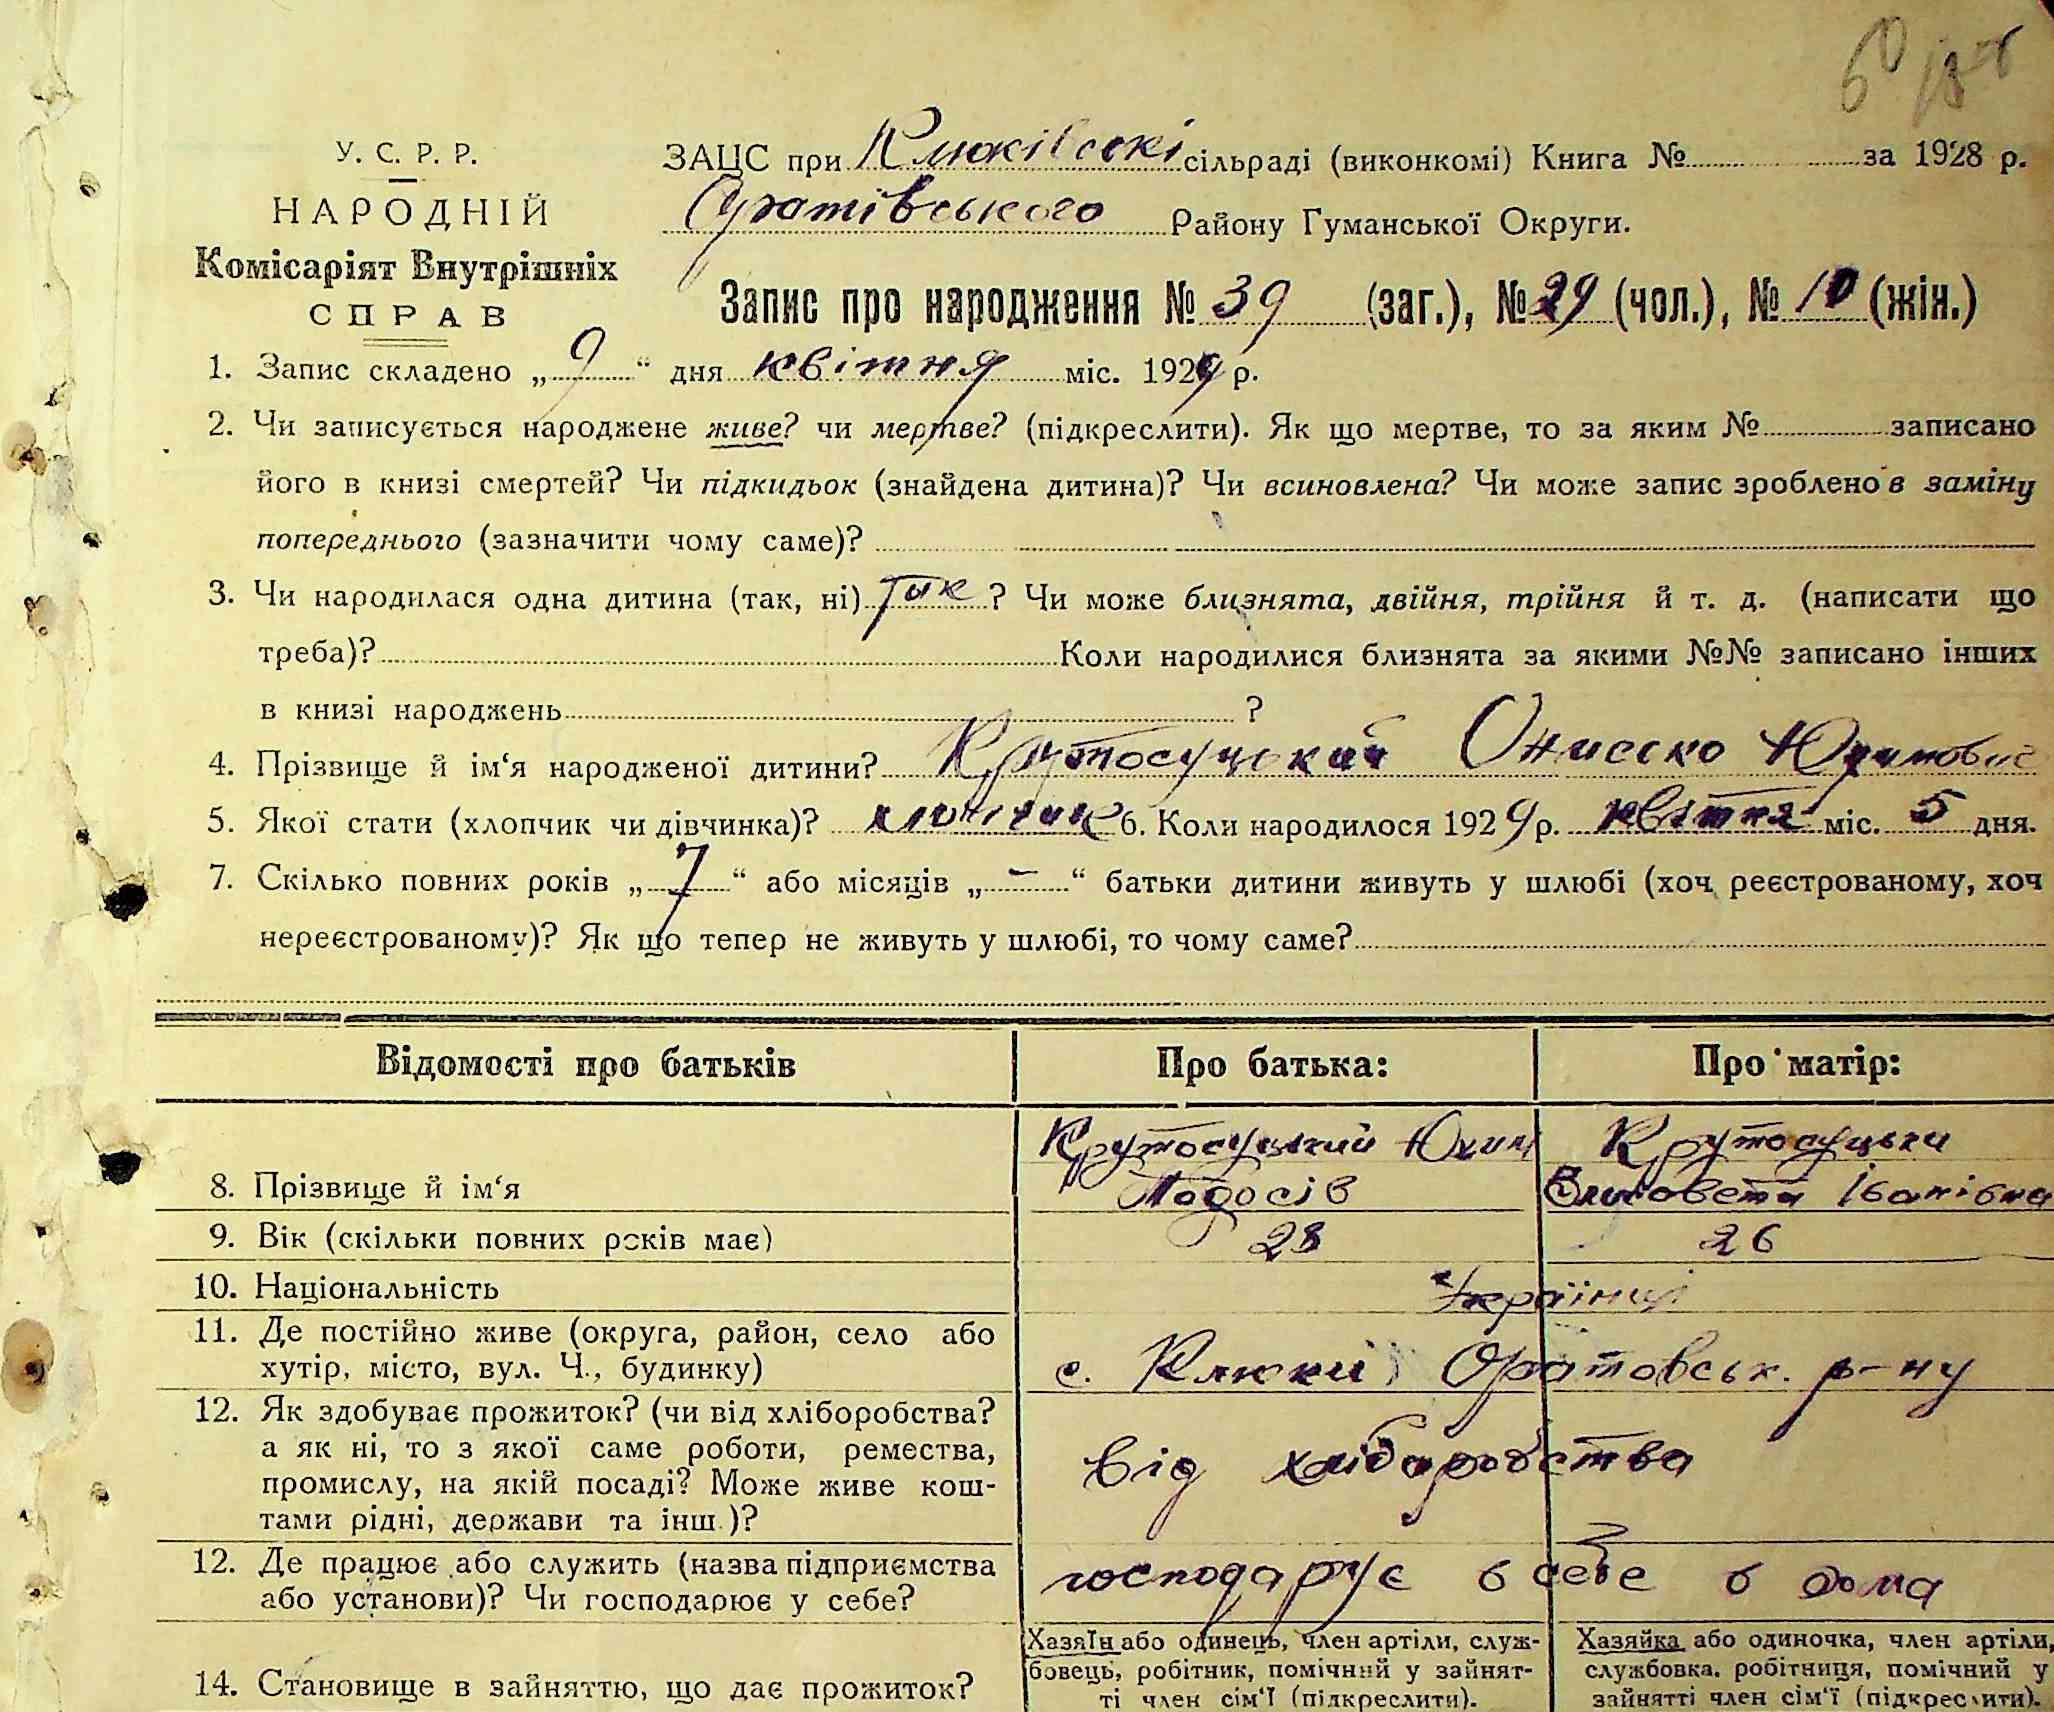 У. С. Р. Р.
НАРОДНІЙ
Комісаріят Внутрішніх
СПРАВ
ЗАЦС при Клюківські сільраді (виконкомі) Книга № за 1928 р.
Оратівського Району Гуманської Округи.
Запис про народження № 39 (заг.), № 29 (чол.), № 10 (жін.)
1. Запис складено „ 9 “ дня квітня міс. 1929 р.
2. Чи записується народжене живе? чи мертве? (підкреслити). Як що мертве, то за яким № записано
його в книзі смертей? Чи підкидьок (знайдена дитина)? Чи всиновлена? Чи може запис зроблено в заміну
попереднього (зазначити чому саме)?
3. Чи народилася одна дитина (так, ні) Так ? Чи може близнята, двійня, трійня й т. д. (написати що
треба)? Коли народилися близнята за якими №№ записано інших
в книзі народжень ?
4. Прізвище й ім‘я народженої дитини? Крутосуцький Юхимович
5. Якої стати (хлопчик чи дівчинка)? хлопчик 6. Коли народилося 1929 р. квітня міс. 5 дня.
7. Скілько повних років „ 7 “ або місяців „ – “ батьки дитини живуть у шлюбі (хоч реєстрованому, хоч
нереєстрованому)? Як що тепер не живуть у шлюбі, то чому саме?
Відомості про батьків Про батька: Про матір:
8. Прізвище й ім‘я Крутосуцький Юхим Тодосів Крутосуцька Єлизовета Іванівна
9. Вік (скільки повних рсків має) 28 26
10. Національність Українці
11. Де постійно живе (округа, район, село або
хутір, місто, вул. Ч., будинку) с. Клюки Оратовськ. р-ну
12. Як здобуває прожиток? (чи від хліборобства?
а як ні, то з якої саме роботи, ремества,
промислу, на якій посаді? Може живе кош-
тами рідні, держави та інш.)? від хліборобства
12. Де працює або служить (назва підприємства
або установи)? Чи господарює у себе? господарує в себе в дома
14. Становище в зайняттю, що дає прожиток?
Хазяїн або одинець, член артіли, служ-
бовець, робітник, помічний у зайнят-
ті член сім‘ї (підкреслити).
Хазяйка або одиночка, член артіли,
службовка, робітниця, помічний у
зайнятті член сім‘ї (підкреслити).